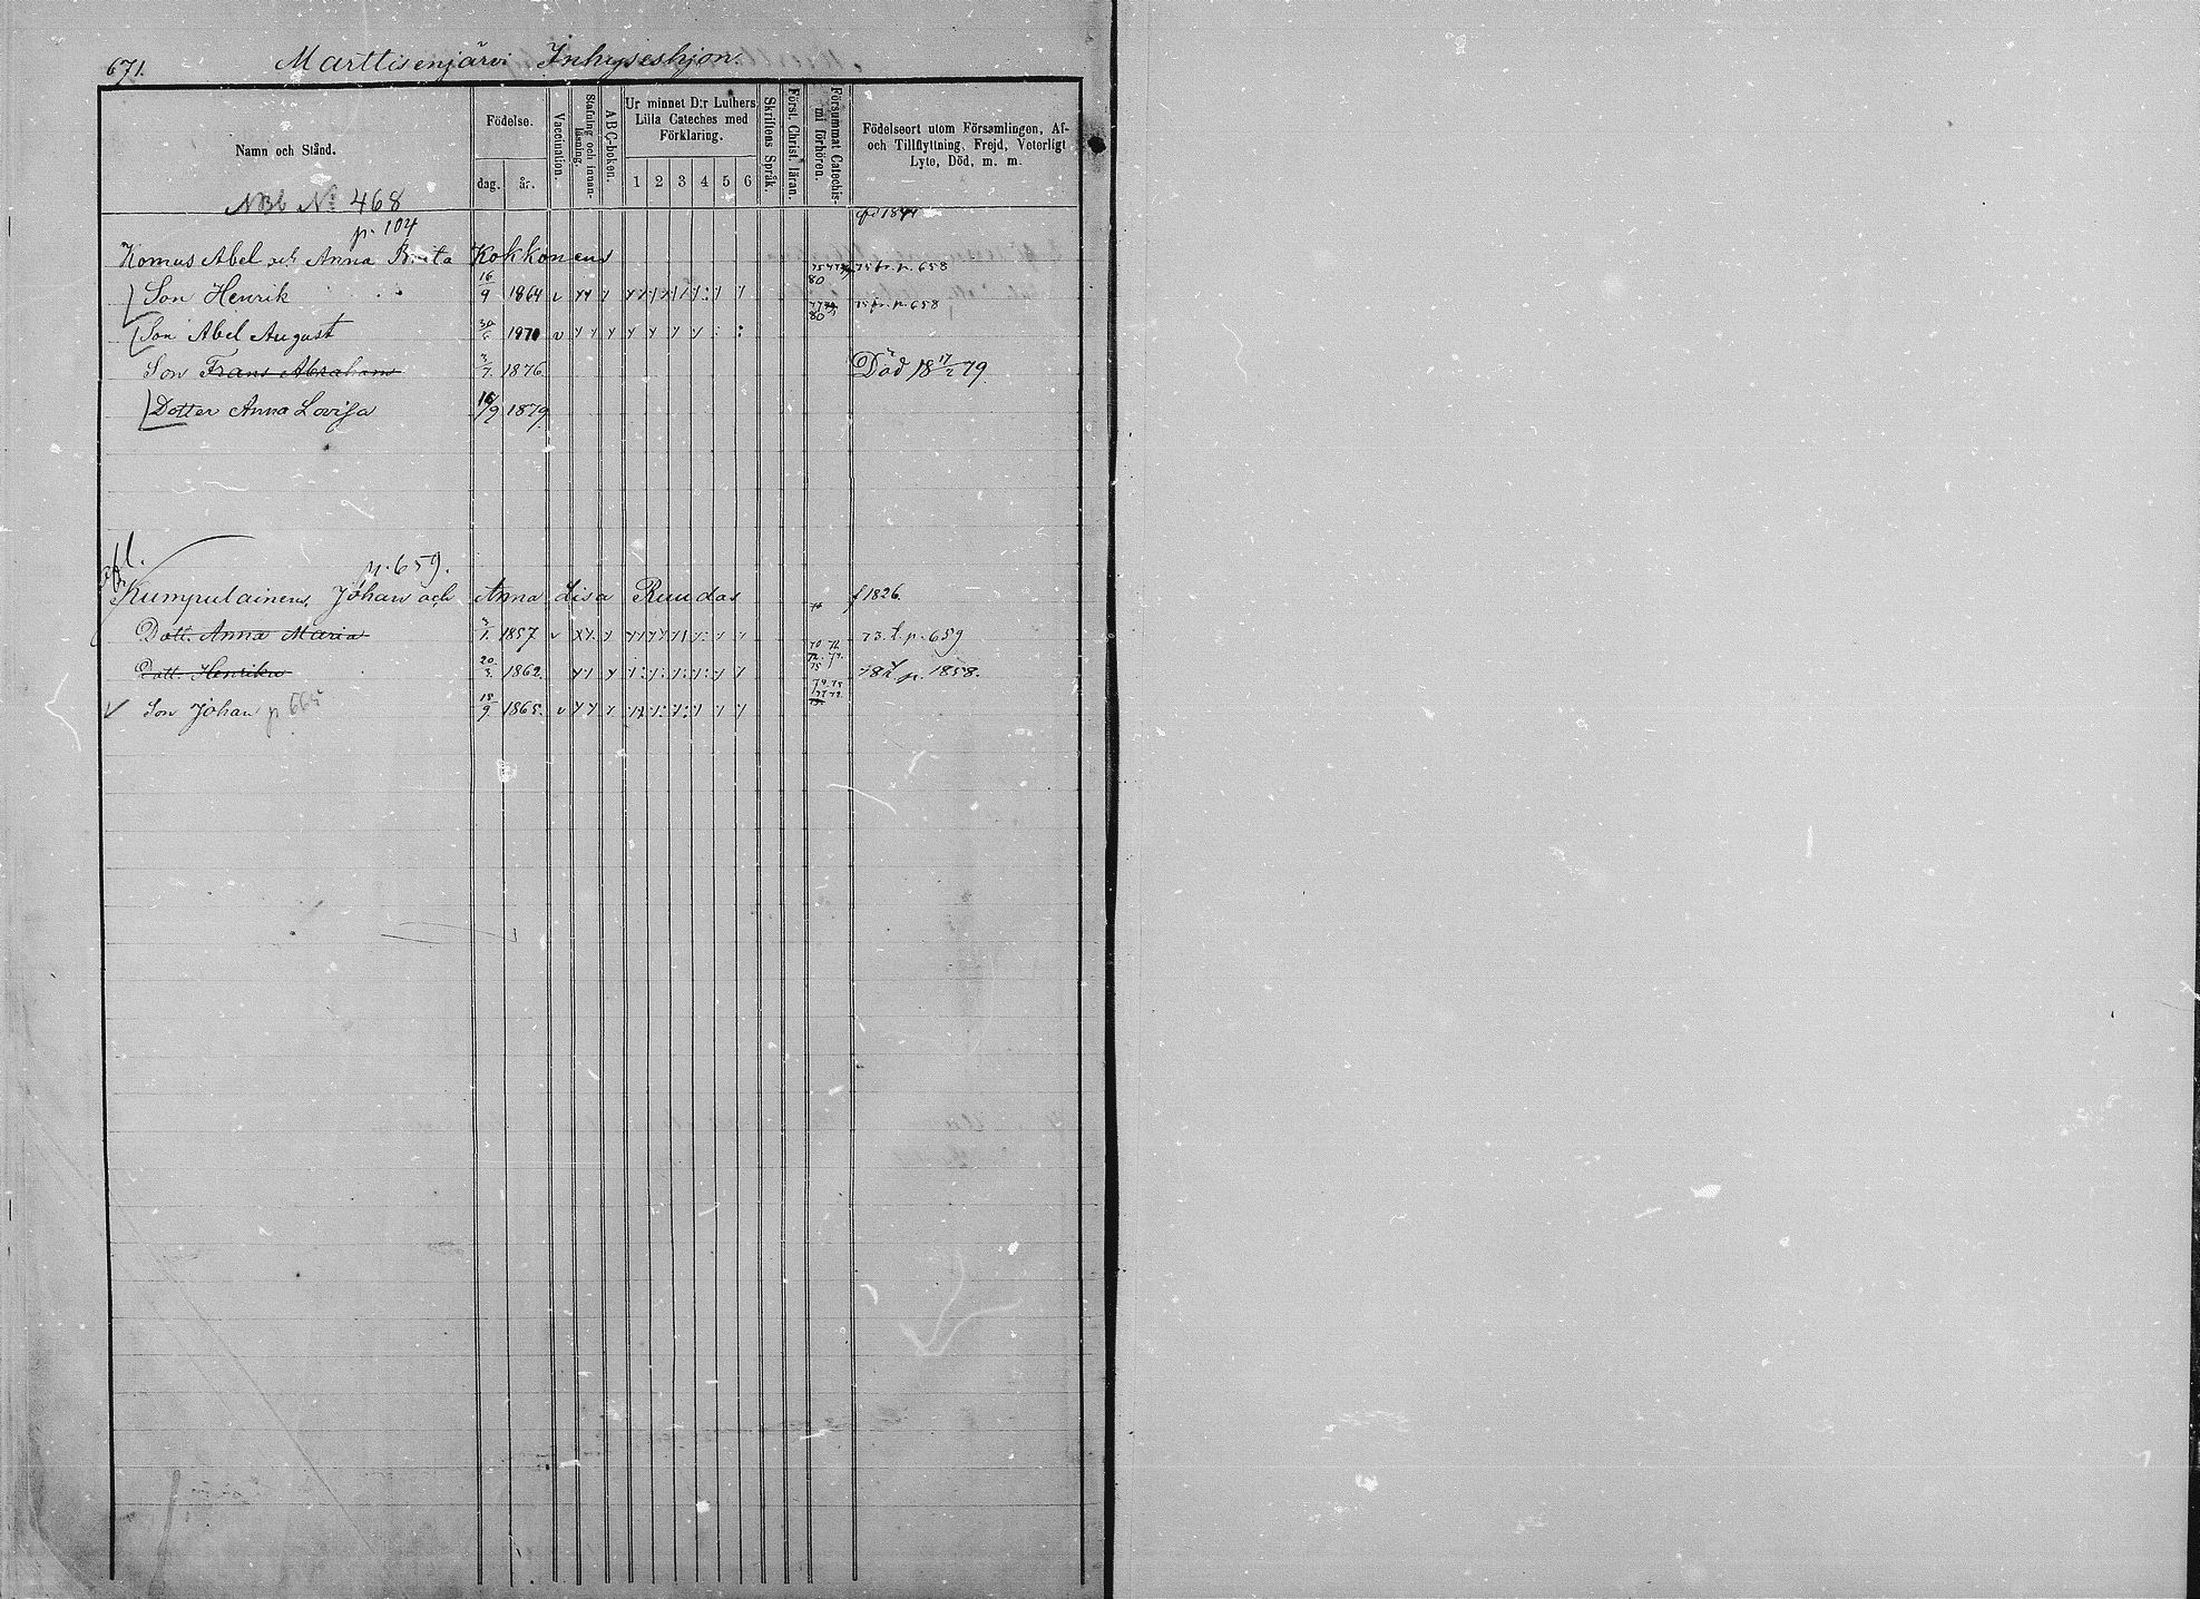 671.
Marttisenjärvi Inhyseshjon.
Namn och Stånd.
Födelse.
dag. år.
Vaccination.
Stafning och innan-läsning.
ABC-boken.
Ur minnet D:r Luthers
Lilla Cateches med
Förklaring.
1 2 3 4 5 6
Skriftens Språk.
Först. Christ. läran.
Försummat Catechis-
mi förhören.
Födelseort utom Församlingen, Af-
och Tillflyttning, Frejd, Veterligt
Lyte, Död, m. m.
NBb No 468
p. 104
Komus Abel och Anna Brita Kokkonens
Son Henrik 16/9 1864 80 75 fr. p. 658
Son Abel August 80 75 fr. p. 658
Son Frans Abraham 3/7 1876 Död 18 17/2 79.
Dotter Anna Lovisa 1879
p. 659.
Kumpulainens, Johan och Anna Lisa Ruudas f 1826.
Dott. Anna Maria 3/1 1857 v 73. t. p. 659
Dott. Henrika 20/3 1862. p. 1858.
Son Johan p 665 18/9 1865. v